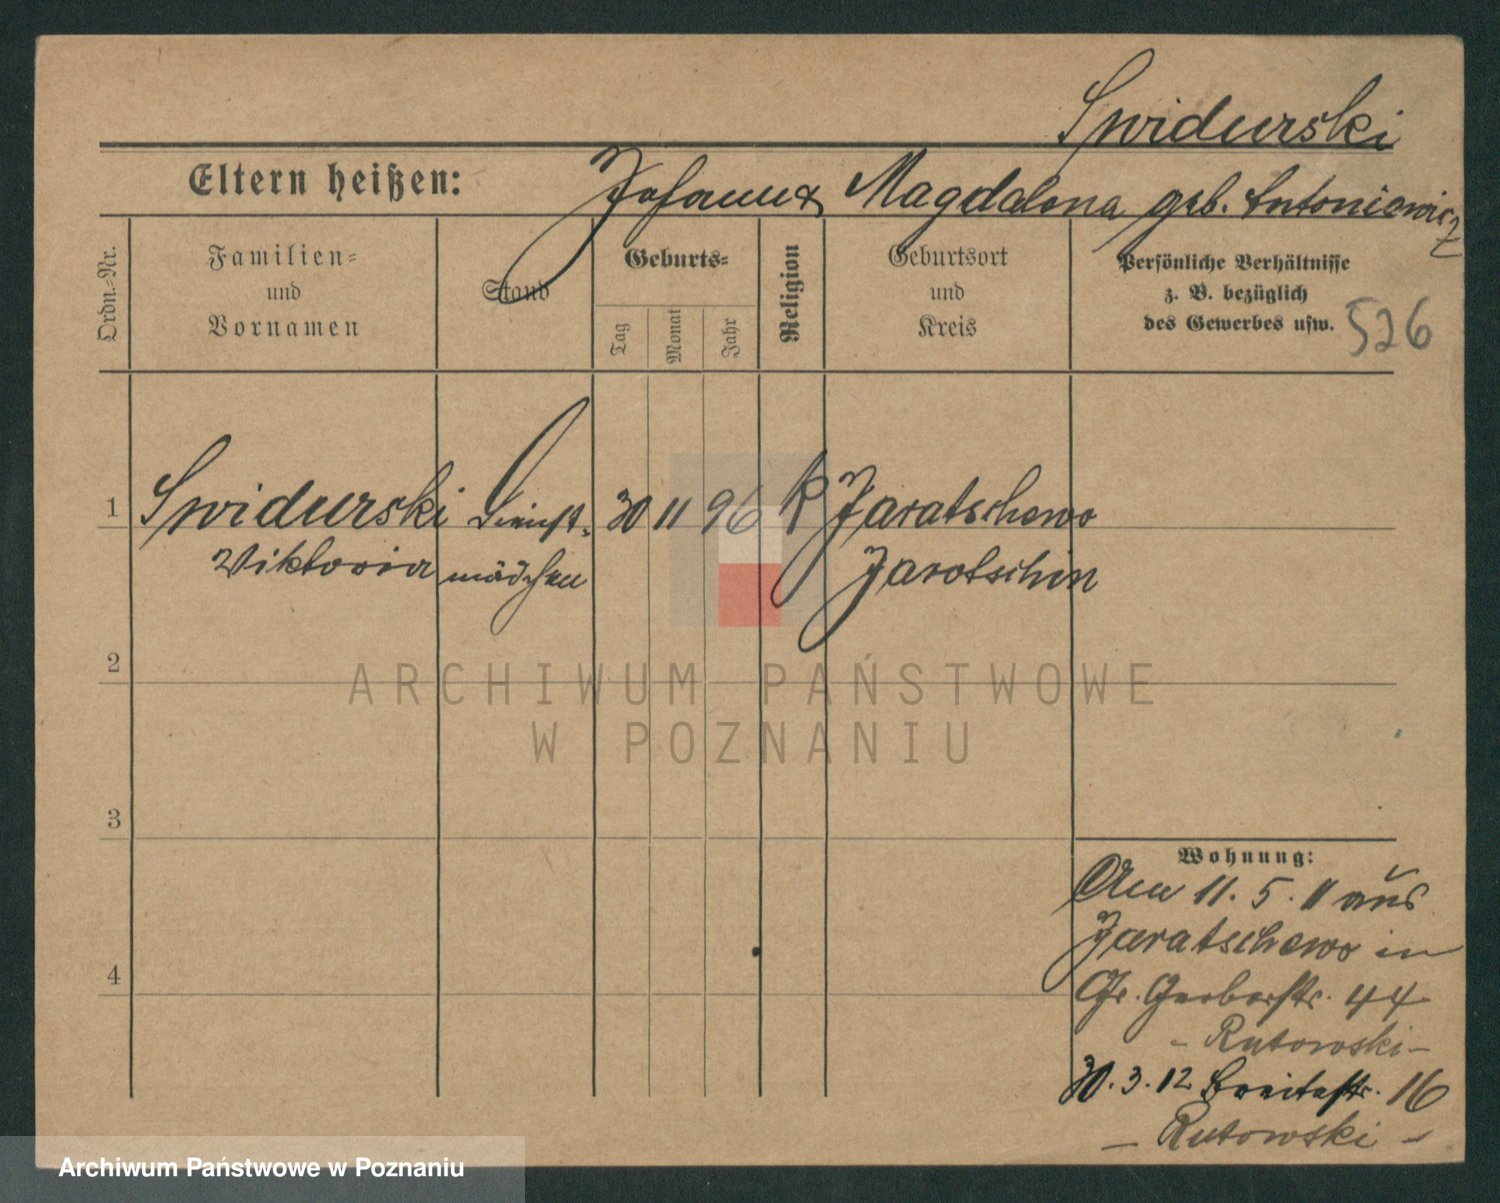 Swidurski
Eltern heißen: Johann & Magdalena geb. Antoniewicz
Ordn.-Nr.
Familien-
und
Vornamen
Stand
Geburts-
Tag
Monat
Jahr
Religion
Geburtsort
und
Kreis
Persönliche Verhältnisse
z. B. bezüglich
des Gewerbes usw.
526
1 Swidurski Dienst- 30 11 96 k Jaratschewo
Viktoria mädchen Jarotschin
2
ARCHIWUM PAŃSTWOWE
W POZNANIU
3
Wohnung:
11. 5. 11 aus
Jaratschewo in
4
Gr. Gerberstr. 44
- Rutowski -
30. 3. 12 Breitestr. 16
- Rutowski -
Archiwum Państwowe w Poznaniu